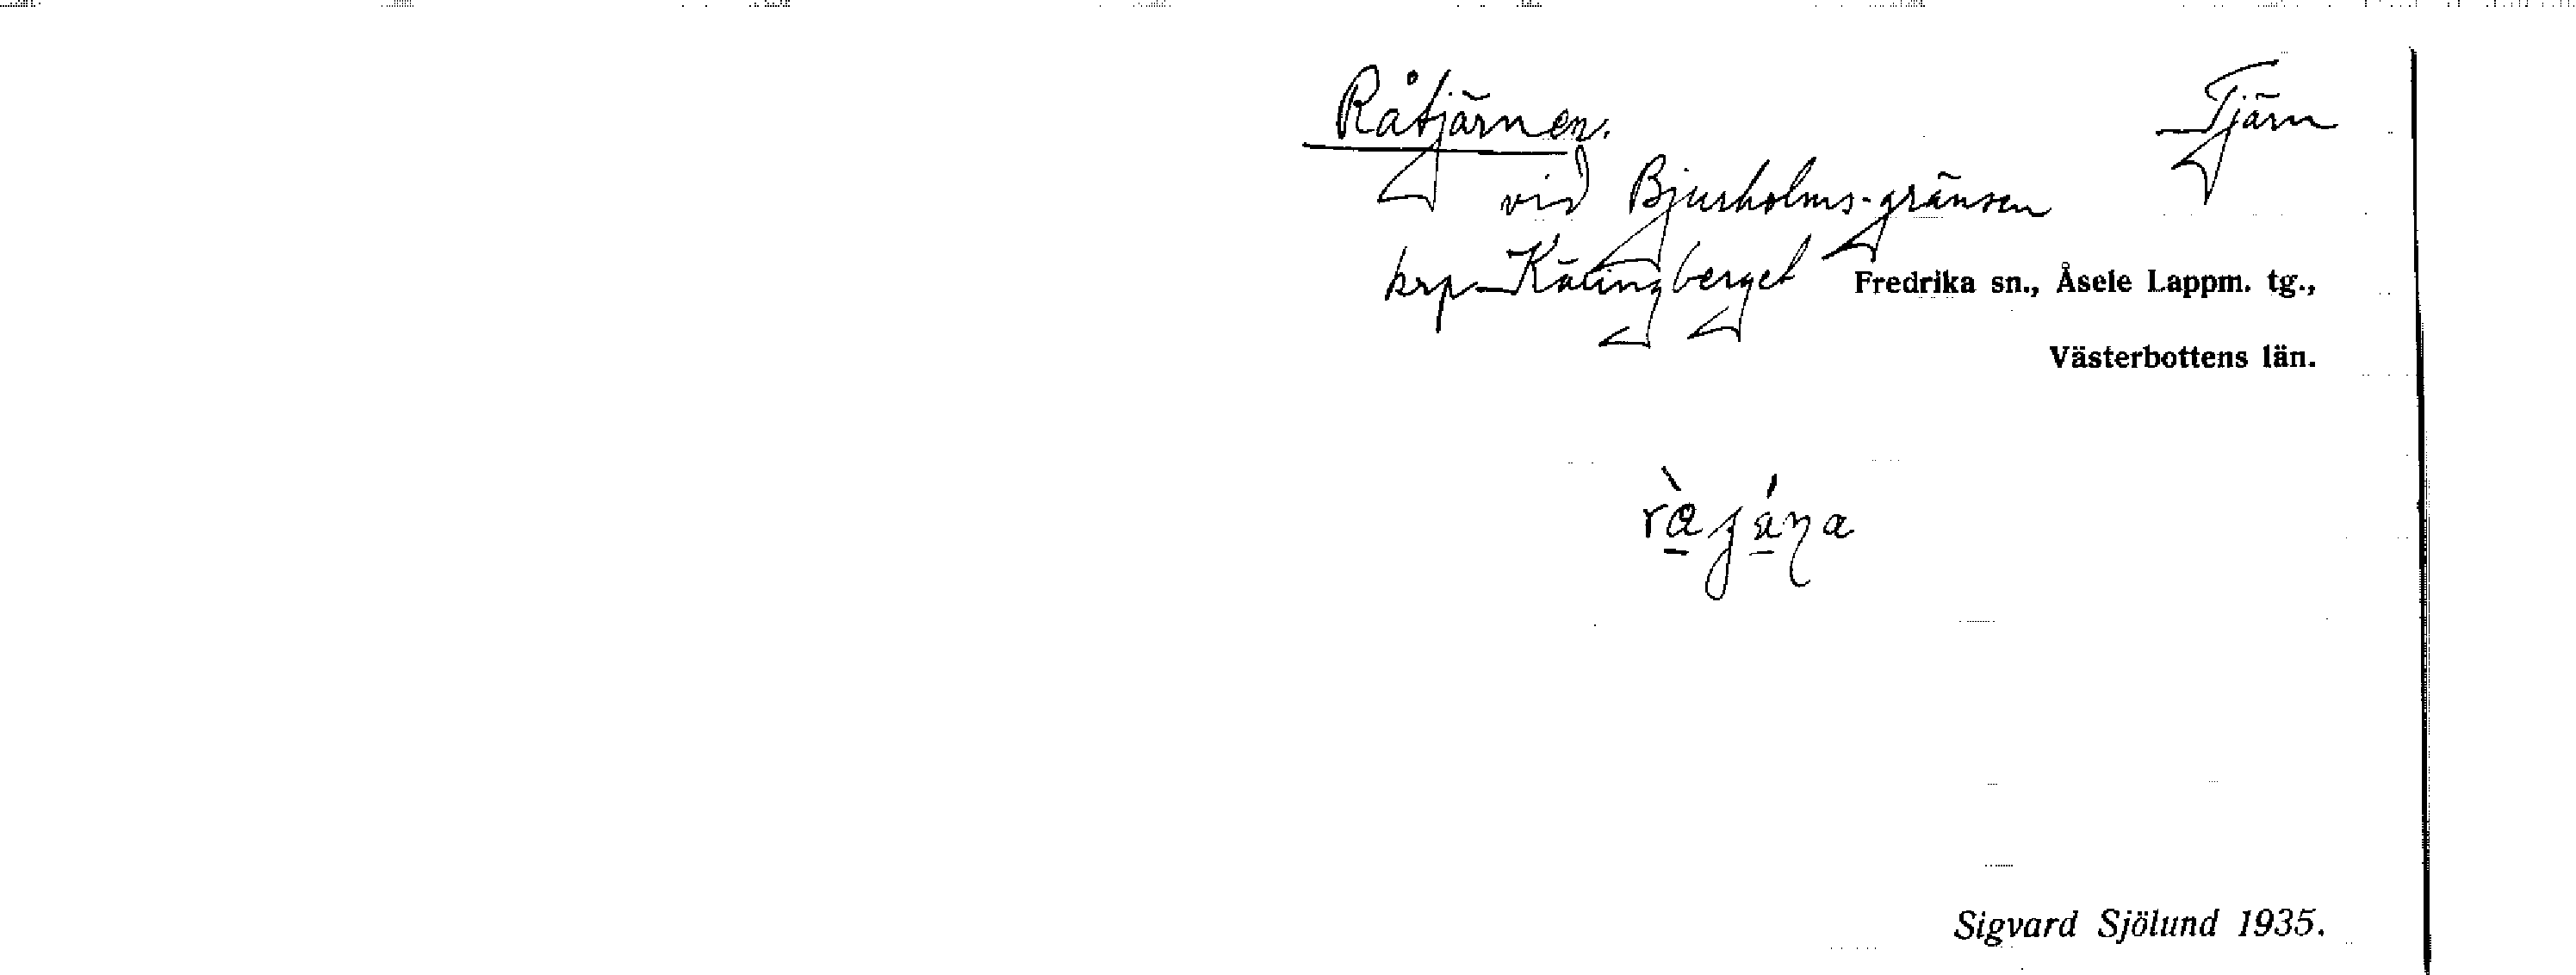 Råtjärnen. Tjärn
vid Bjurholms-gränsen
krp Käringberget Fredrika sn., Åsele Lappm. tg.,
Västerbottens län.
Sigvard Sjölund 1935.